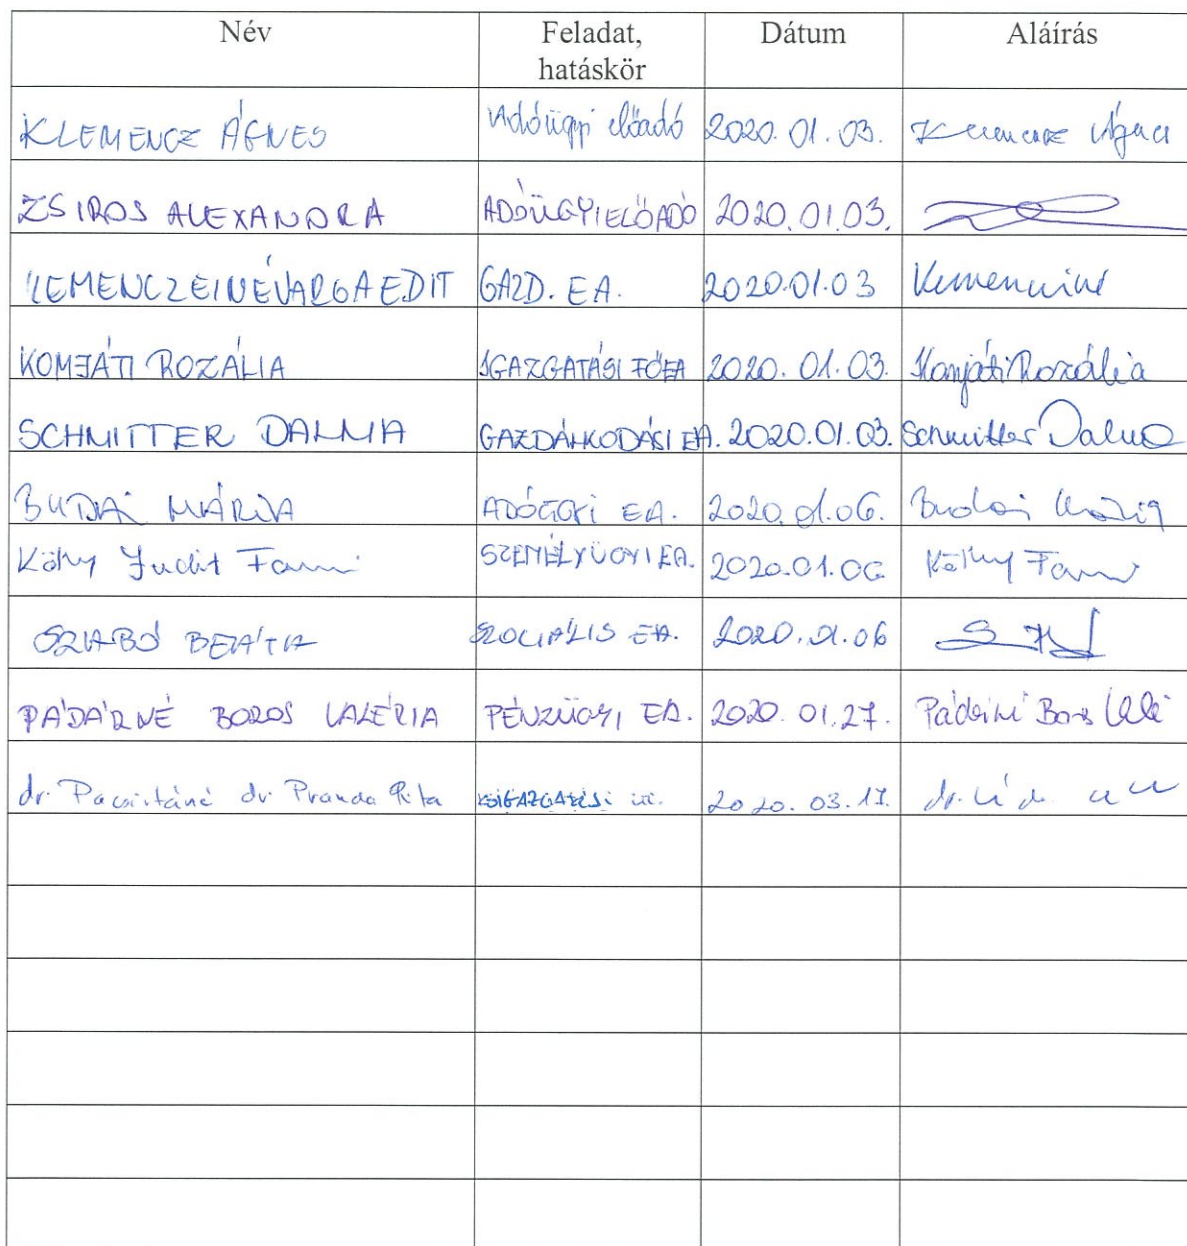 Név Feladat, hatáskör Dátum Aláírás
KLEMENCZ ÁGNES Adóügyi előadó 2020.01.03. Klemencz Ágnes
ZSIROS ALEXANDRA ADÓÜGYI ELŐADÓ 2020.01.03.
KEMENCZEINÉ VARGA EDIT GAZD. EA. 2020.01.03 Kemencziné
KOMJÁTI ROZÁLIA IGAZGATÁSI FŐEA 2020.01.03. Komjáti Rozália
SCHMITTER DALMA GAZDÁLKODÁSI EA. 2020.01.03. Schmitter Dalma
BUDAI MÁRIA ADÓÜGYI EA. 2020.01.06. Budai Mária
Judit Fanni SZEMÉLYÜGYI EA. 2020.01.06 Fanni
SZABÓ BEÁTA SZOCIÁLIS EA. 2020.01.06
PÁDÁRNÉ BOROS VALÉRIA PÉNZÜGYI EA. 2020.01.27. Pádárné Boros Valé
dr. dr. Rita IGAZGATÁSI 2020.03.17. dr.